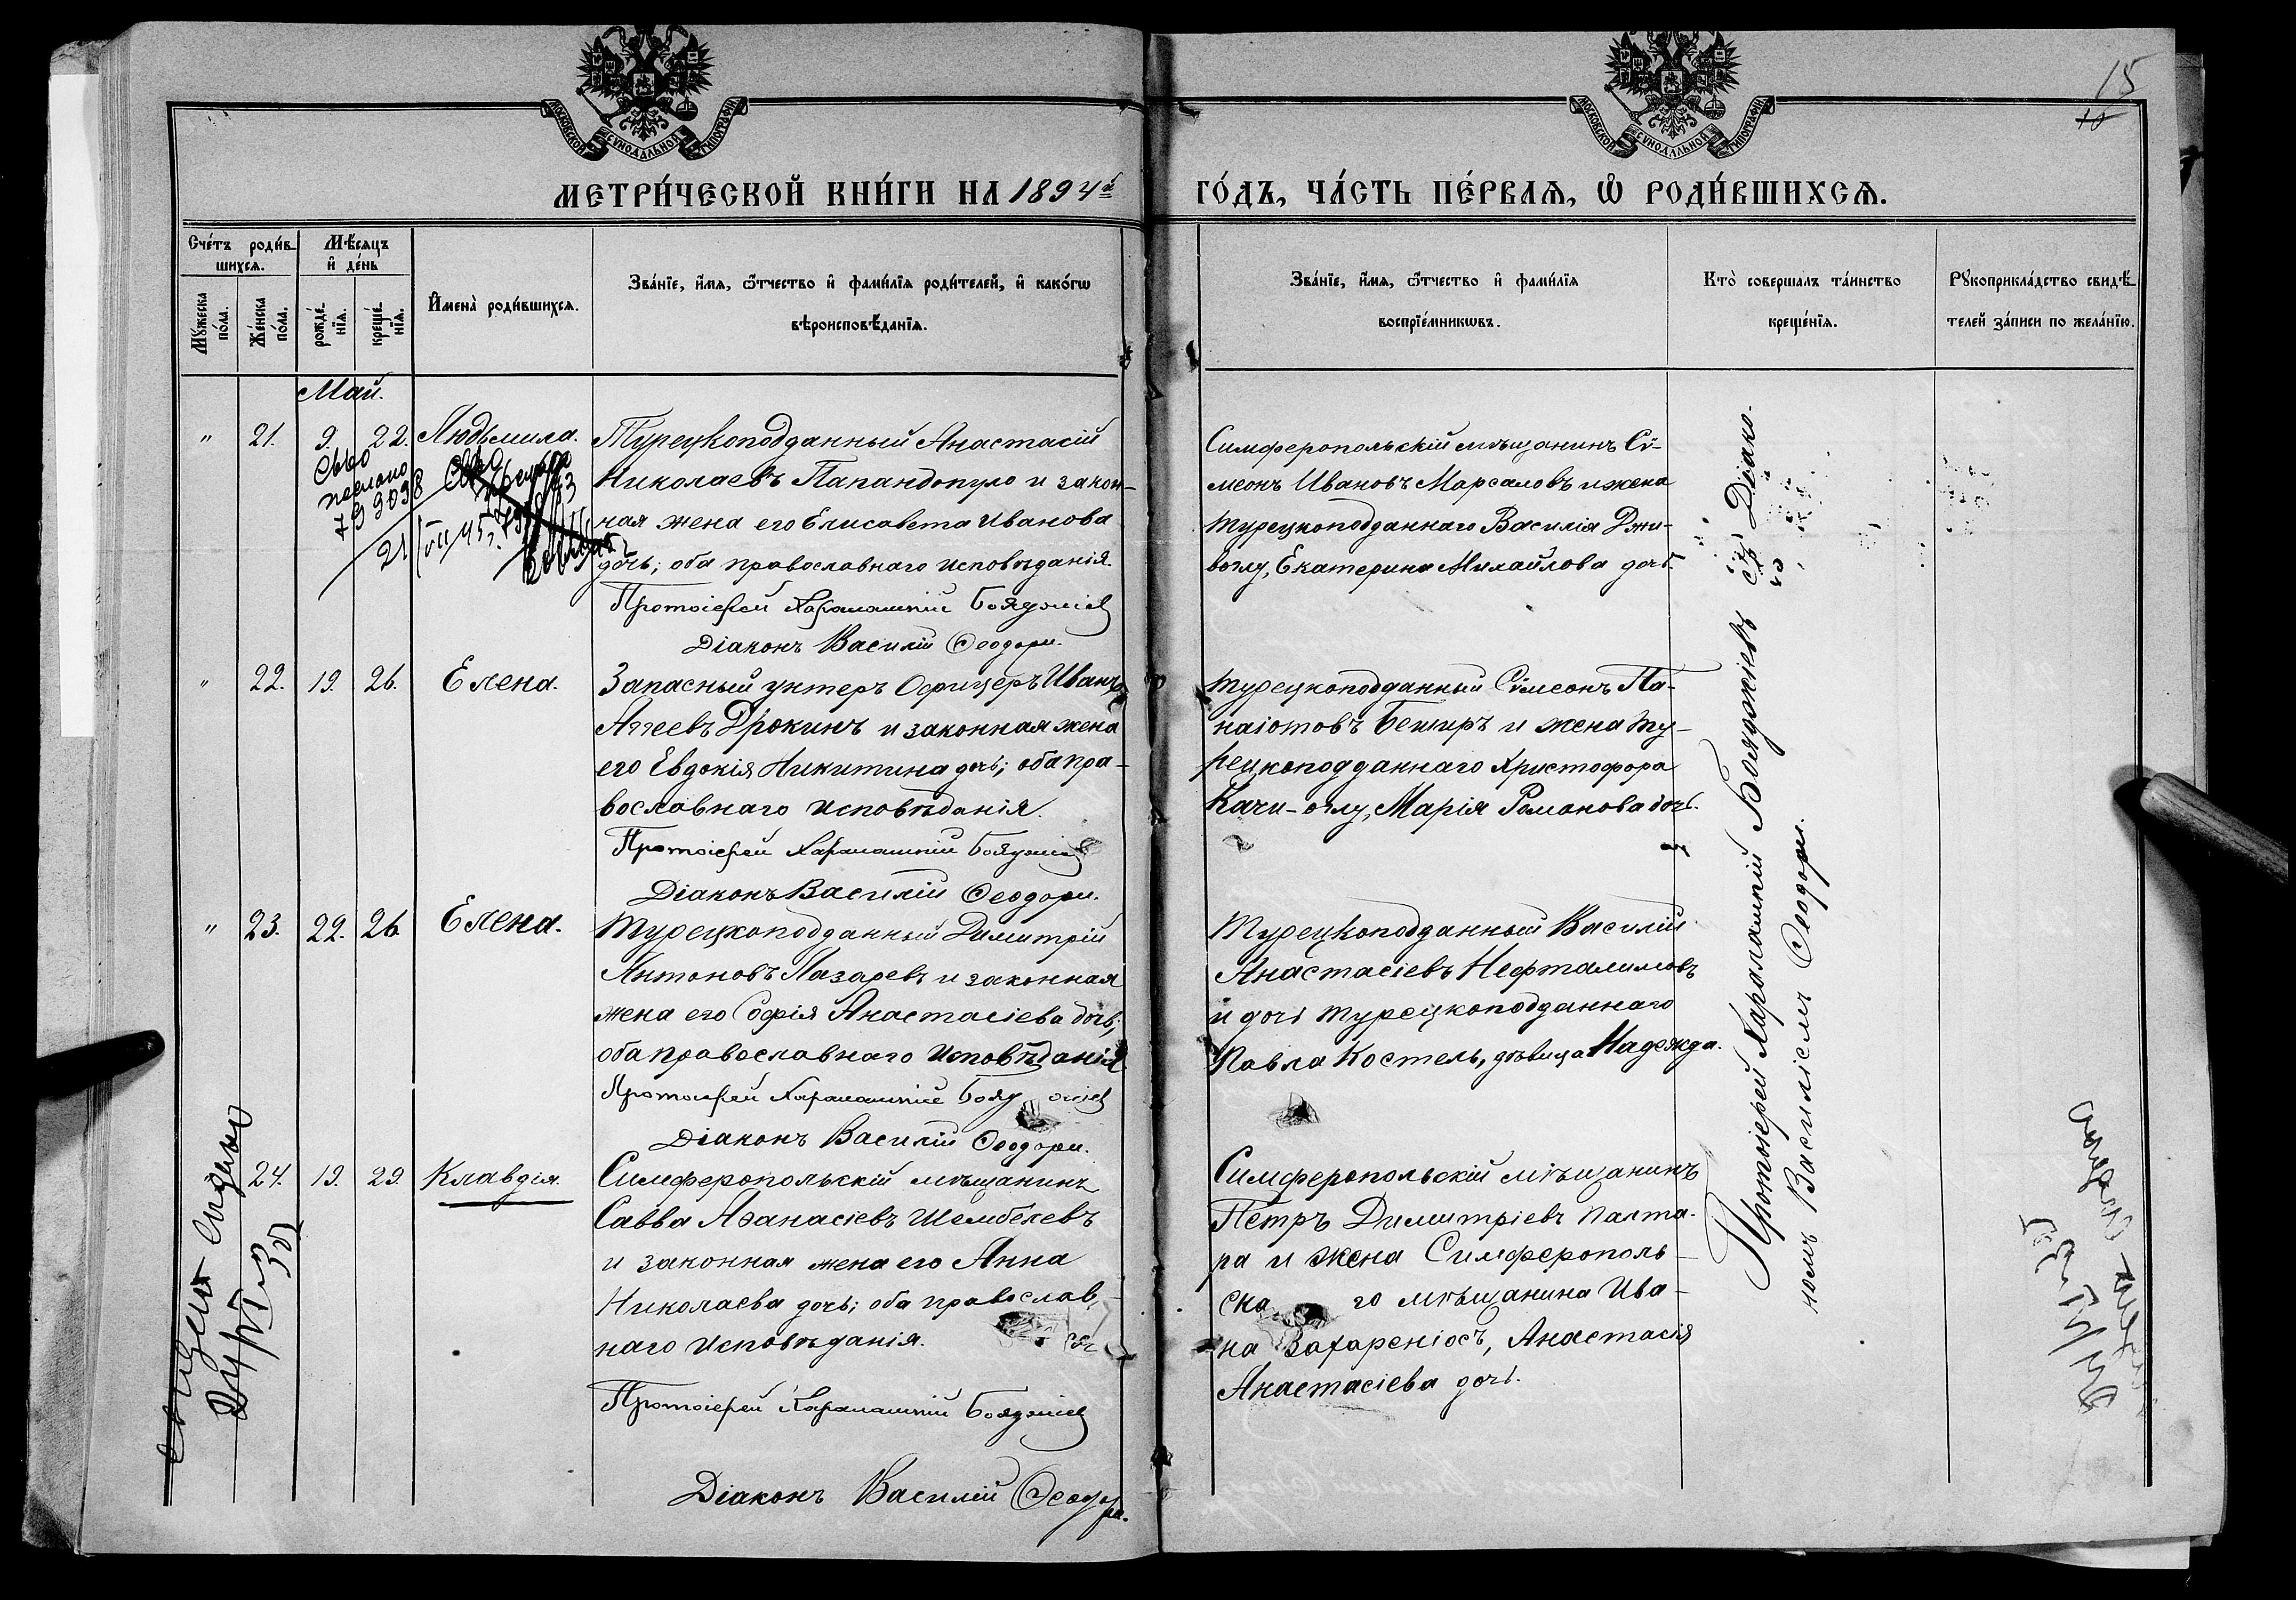 15
10
МОСКОВСКОЙ СѴНОДАЛЬНОЙ ТИПОГРАФІИ
МОСКОВСКОЙ СѴНОДАЛЬНОЙ ТИПОГРАФІИ
МЕТРИ́ЧЕСКОЙ КНИ́ГИ НА 1894й
ГО́ДЪ, ЧА́СТЬ ПЕ́РВАѦ, Ѽ РОДИ́ВШИХСѦ.
Сче́тъ роди́в-
шихсѧ.
Мꙋ́жеска по́ла.
Же́нска по́ла.
Мѣ́сяцъ
и҆ де́нь
рожде́-нїѧ.
креще́-нїѧ.
И҆мена̀ роди́вшихсѧ.
Зва́нїе, и҆́мѧ, ѻ҆́тчество и҆ фами́лїѧ роди́телей, и҆ како́гѡ
вѣроисповѣ́данїѧ.
Зва́нїе, и҆́мѧ, ѻ҆́тчество и҆ фами́лїѧ
воспрїе́мникѡвъ.
Кто̀ соверша́лъ та́инство
креще́нїѧ.
Рꙋкоприкла́дство свидѣ́-
телей за́писи по жела́нїю.
Май.
" 21. 9. 22. Людьмила.
Турецкоподданный Анастасій
Николаевъ Папандопуло и закон-
ная жена его Елисавета Иванова
дочь; оба православнаго исповѣданія.
Протоіерей Харалампій Бояджіев
Діаконъ Василій Ѳеодори.
Симферопольскій мѣщанинъ Сѵ-
меонъ Ивановъ Марсаловъ и жена
турецкоподданнаго Василія Джи-
воглу, Екатерина Михайлова дочь.
Св-во
послано
79 9038
21/VII 45
" 22. 19. 26. Елена.
Запасный унтеръ Офицеръ Иванъ
Аггеевъ Дрокинъ и законная жена
его Евдокія Никитина дочь; оба пра-
вославнаго исповѣданія.
Протоіерей Харалампій Бояджіев
Діаконъ Василій Ѳеодори.
Турецкоподданный Сѵмеонъ Па-
наіотовъ Беширъ и жена ту-
рецкоподданнаго Христофора
Качи-оглу, Марія Романова дочь.
" 23. 22. 26. Елена.
Турецкоподданный Димитрій
Антоновъ Лазаревъ и законная
жена его Софія Анастасіева дочь;
оба православнаго исповѣданія.
Протоіерей Харалампій Бояджіев
Діаконъ Василій Ѳеодори.
Турецкоподданный Василій
Анастасіевъ Нефталимовъ
и дочь турецкоподданнаго
Павла Костель, дѣвица Надежда.
24. 19. 29. Клавдія.
Симферопольскій мѣщанинъ
Савва Аѳанасіевъ Шембелевъ
и законная жена его Анна
Николаева дочь; оба православ-
наго исповѣданія.
Протоіерей Харалампій Бояджіев
Діаконъ Василій Ѳеодори.
Симферопольскій мѣщанинъ
Петръ Димитріевъ Палта-
ра и жена Симферополь-
скаго мѣщанина Ива-
на Захареніосъ, Анастасія
Анастасіева дочь.
Протоіерей Харалампій Бояджіевъ съ Діако-
номъ Василіемъ Ѳеодори.